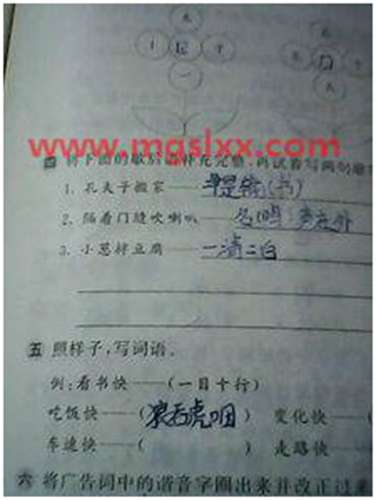 www.mgslxx.com
将下面的歇后语补充完整，再试着写两句歇
1. 孔夫子搬家——是输(书)
2. 隔着门缝吹喇叭——名(鸣)声在外
3. 小葱拌豆腐——一清二白
五 照样子，写词语。
例：看书快——（一目十行）
吃饭快——（狼吞虎咽） 变化快——（
车速快——（ ） 走路快——（
六 将广告词中的谐音字圈出来并改正过来